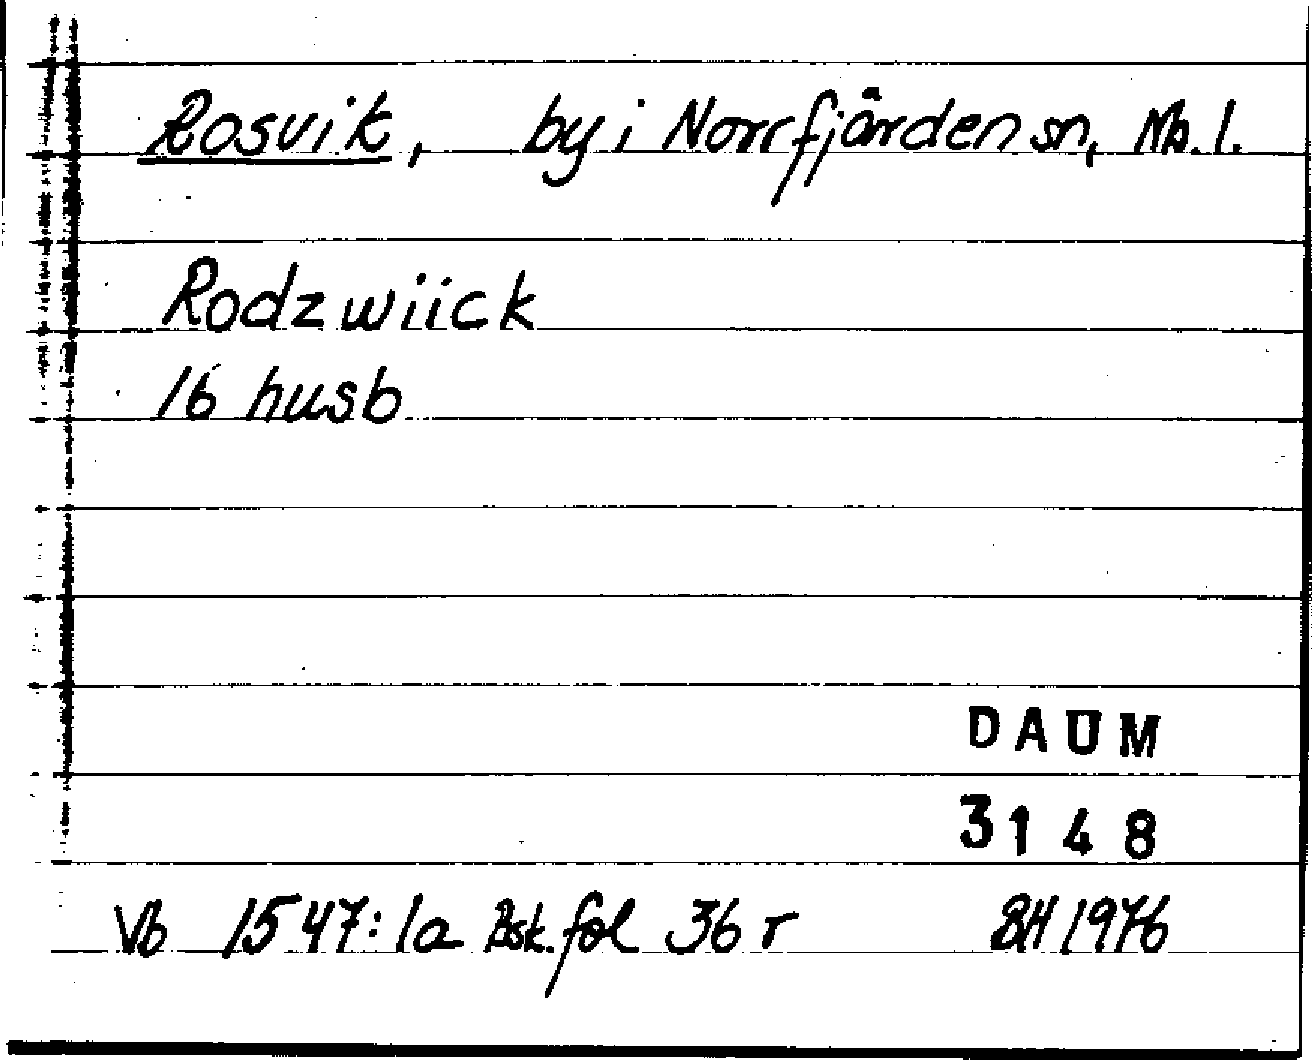 Rosvik, by i Norrfjärden sn, Nb. l.
Rodzwiick
16 husb
DAUM
3148
Vb 1547:1a Bsk. fol 36 r BH 1976